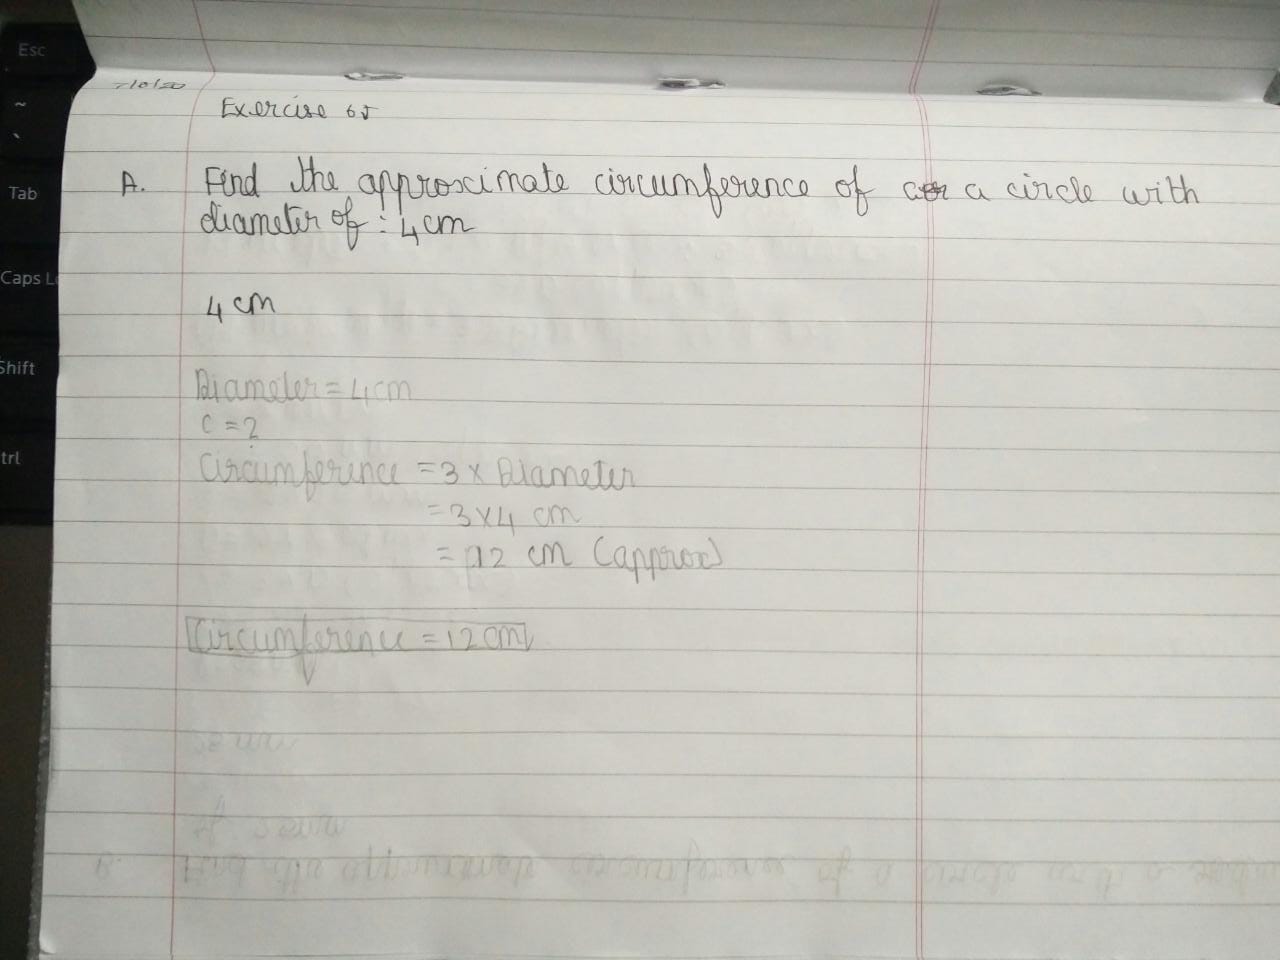 Esc
~
`
Tab
Caps L
Shift
trl
Exercise 65
A. Find the approximate circumference of a circle with
diameter of : 4cm
4 cm
Diameter = 4cm
C = ?
Circumference = 3 x Diameter
= 3x4 cm
= 12 cm (approx)
Circumference = 12cm